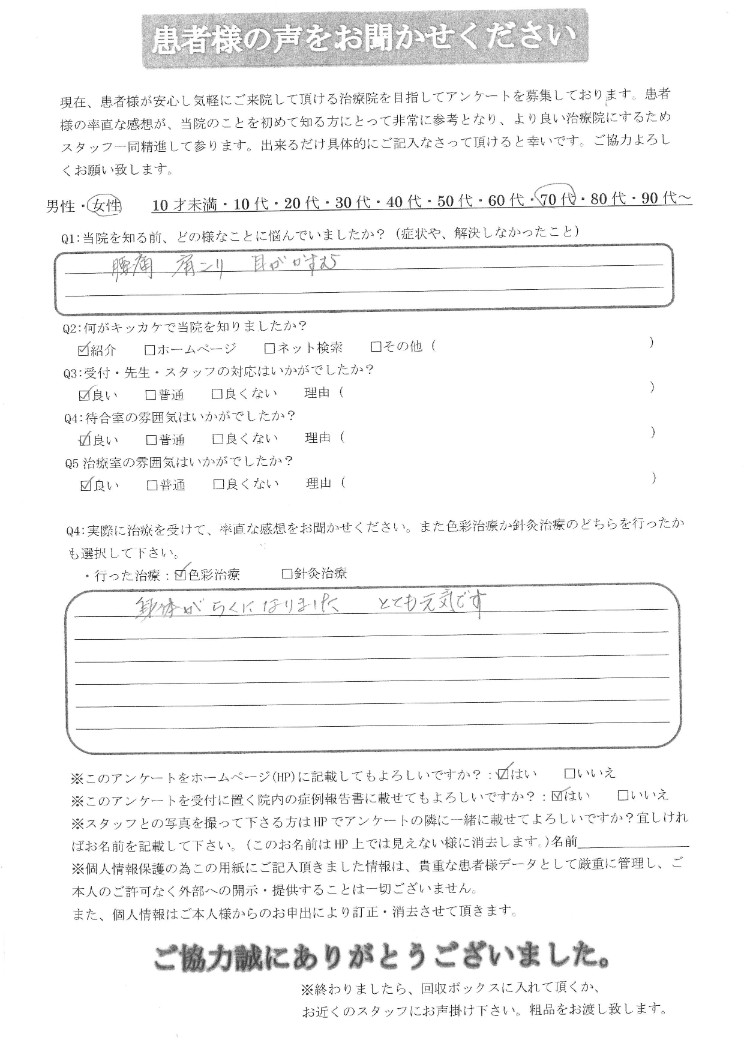 患者様の声をお聞かせください
現在、患者様が安心し気軽にご来院して頂ける治療院を目指してアンケートを募集しております。患者
様の率直な感想が、当院のことを初めて知る方にとって非常に参考となり、より良い治療院にするため
スタッフ一同精進して参ります。出来るだけ具体的にご記入なさって頂けると幸いです。ご協力よろし
くお願い致します。
男性・女性 10才未満・10代・20代・30代・40代・50代・60代・70代・80代・90代~
Q1:当院を知る前、どの様なことに悩んでいましたか?(症状や、解決しなかったこと)
腰痛 肩こり 目がかすむ
Q2:何がキッカケで当院を知りましたか?
☑紹介 □ホームページ □ネット検索 □その他( )
Q3:受付・先生・スタッフの対応はいかがでしたか?
☑良い □普通 □良くない 理由( )
Q4:待合室の雰囲気はいかがでしたか?
☑良い □普通 □良くない 理由( )
Q5 治療室の雰囲気はいかがでしたか?
☑良い □普通 □良くない 理由( )
Q4:実際に治療を受けて、率直な感想をお聞かせください。また色彩治療か針灸治療のどちらを行ったか
も選択して下さい。
・行った治療:☑色彩治療 □針灸治療
身体がらくになりました とても元気です
※このアンケートをホームページ(HP)に記載してもよろしいですか?:☑はい □いいえ
※このアンケートを受付に置く院内の症例報告書に載せてもよろしいですか?:☑はい □いいえ
※スタッフとの写真を撮って下さる方はHPでアンケートの隣に一緒に載せてよろしいですか?宜しけれ
ばお名前を記載して下さい。(このお名前はHP上では見えない様に消去します。)名前
※個人情報保護の為この用紙にご記入頂きました情報は、貴重な患者様データとして厳重に管理し、ご
本人のご許可なく外部への開示・提供することは一切ございません。
また、個人情報はご本人様からのお申出により訂正・消去させて頂きます。
ご協力誠にありがとうございました。
※終わりましたら、回収ボックスに入れて頂くか、
お近くのスタッフにお声掛け下さい。粗品をお渡し致します。